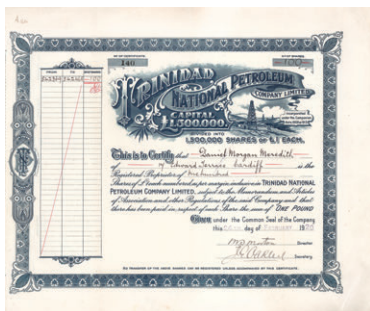 No OF CERTIFICATE
No OF SHARES
140
100
FROM TO
TRINIDAD
NATIONAL PETROLEUM
COMPANY LIMITED
CAPITAL
£1,300,000
DIVIDED INTO
1,300,000 SHARES OF £1 EACH.
This is to Certify that Daniel Morgan Meredith
Cardiff is the
Registered Proprietor of One hundred
Shares of £1 each numbered as per margin inclusive in TRINIDAD NATIONAL
PETROLEUM COMPANY LIMITED, subject to the Memorandum and Articles
of Association and other Regulations of the said Company and that
there has been paid in respect of each Share the sum of ONE POUND
Given under the Common Seal of the Company
this day of
Director
Secretary
NO TRANSFER OF THE ABOVE SHARES CAN BE REGISTERED UNLESS ACCOMPANIED BY THIS CERTIFICATE.